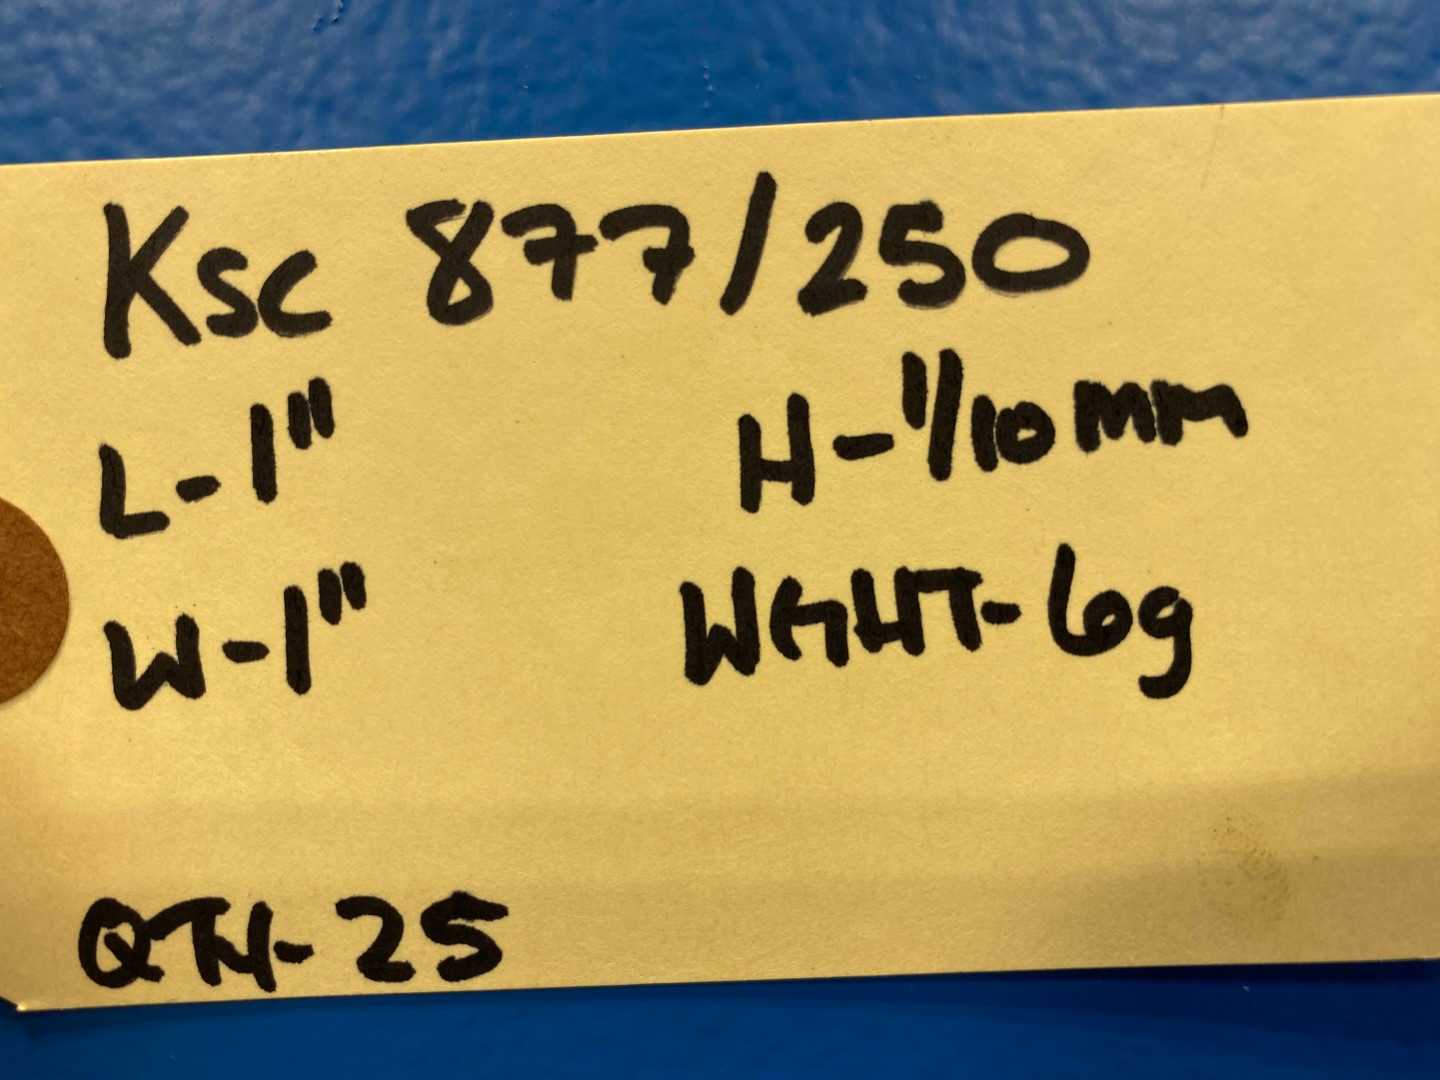 Ksc 877/250
L-1" H-1/10mm
W-1" WGHT-6g
QTY-25